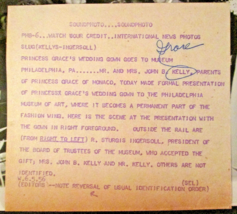 SOUNDPHOTO...SOUNDPHOTO
WATCH YOUR CREDIT...INTERNATIONAL NEWS PHOTOS
SLUG(KELLYS-INGERSOLL)
Grace
PRINCESS GRACE'S WEDDING GOWN GOES TO MUSEUM
PHILADELPHIA, PA....MR. AND MRS. JOHN B. KELLY, PARENTS
OF PRINCESS GRACE OF MONACO, TODAY MADE FORMAL PRESENTATION
OF PRINCESS GRACE'S WEDDING GOWN TO THE PHILADELPHIA
MUSEUM OF ART, WHERE IT BECOMES A PERMANENT PART OF THE
FASHION WING. HERE IS THE SCENE AT THE PRESENTATION WITH
THE GOWN IN RIGHT FOREGROUND. OUTSIDE THE RAIL ARE
(FROM RIGHT TO LEFT) R. STURGIS INGERSOLL, PRESIDENT OF
THE BOARD OF TRUSTEES OF THE MUSEUM, WHO ACCEPTED THE
GIFT, MRS. JOHN B. KELLY AND MR. KELLY. OTHERS ARE NOT
IDENTIFIED.
(EDITORS--NOTE REVERSAL OF USUAL IDENTIFICATION ORDER)